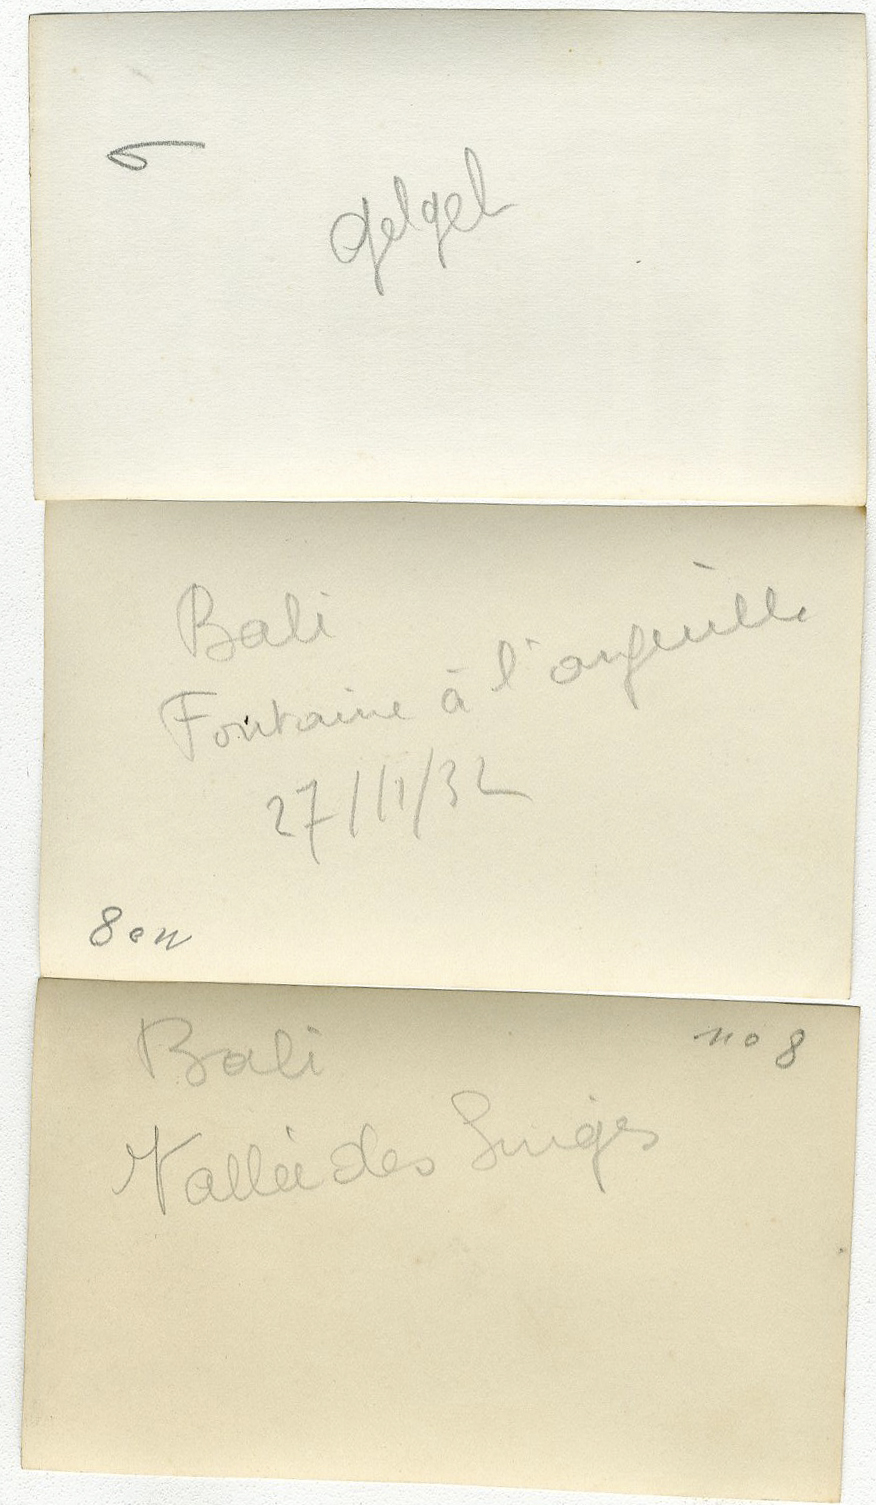 gelgel
Bali
Fontaine à l'anguille
27/11/32
8
Bali
no 8
Vallée des Singes